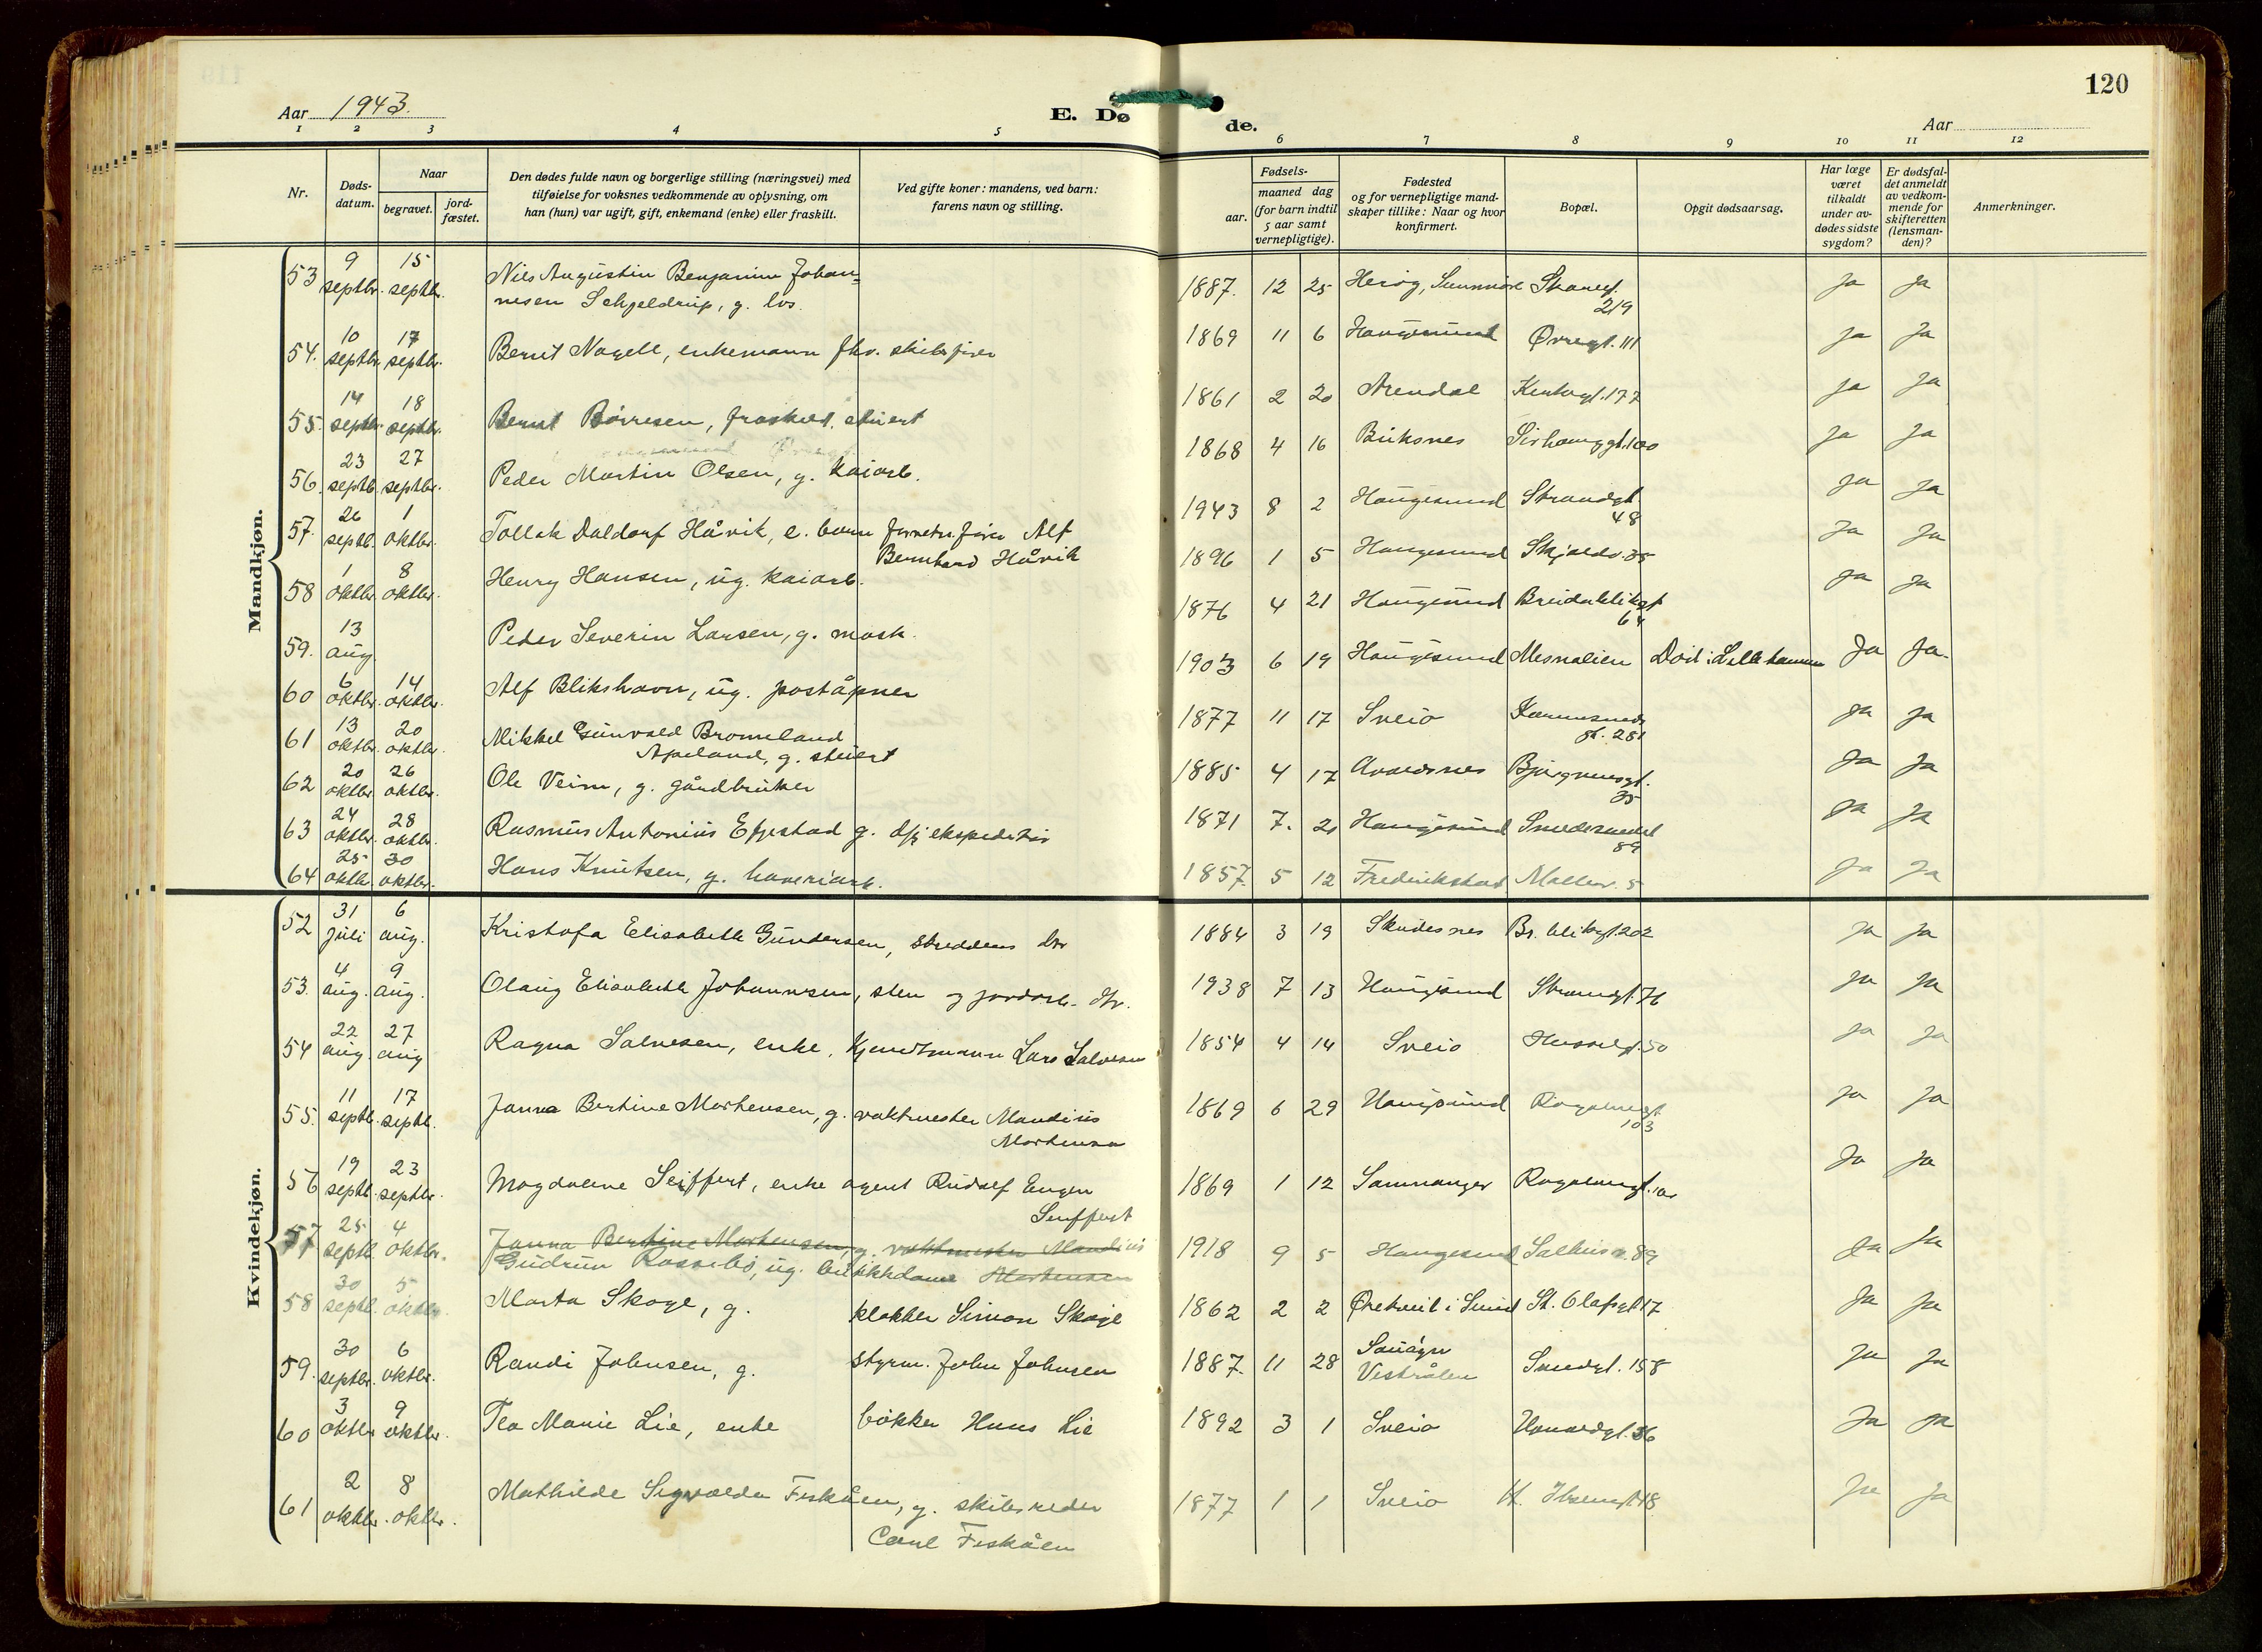 120
Aar 1943.
E. Døde.
Aar
1 2 3 4 5 6 7 8 9 10 11 12
Nr.
Døds-
datum.
Naar
begravet.
jord-
fæstet.
Den dødes fulde navn og borgerlige stilling (næringsvei) med
tilføielse for voksnes vedkommende av oplysning, om
han (hun) var ugift, gift, enkemand (enke) eller fraskilt.
Ved gifte koner: mandens, ved barn:
farens navn og stilling.
Fødsels-
aar.
maaned dag
(for barn indtil
5 aar samt
vernepligtige).
Fødested
og for vernepligtige mand-
skaper tillike: Naar og hvor
konfirmert.
Bopæl.
Opgit dødsaarsag.
Har læge
været
tilkaldt
under av-
dødes sidste
sygdom?
Er dødsfal-
det anmeldt
av vedkom-
mende for
skifteretten
(lensman-
den)?
Anmerkninger.
Mandkjøn.
53 9 septbr. 15 septbr. Nils Augustin Benjamin Johan-
nesen Schjeldrup, g. los. 1887. 12 25 Herøy, Sunnmøre 219 Ja Ja
54. 10 septbr. 17 septbr. Bernt Nagell, enkemann fhv. skibsfører 1869 11 6 Haugesund Øvregt. 111 Ja Ja
55. 14 septbr. 18 septbr. Bernt Børresen, fraskilt, stuert 1861 2 20 Arendal 177 Ja Ja
56. 23 septb. 27 septbr. Peder Martin Olsen, g. kaiarb. 1868 4 16 Buksnes 100 Ja Ja
57. 26 septb. 1 oktbr. Tollak Daldorf Håvik, e. barn Alf
Bernhard Håvik 1943 8 2 Haugesund Strandgt.
48 Ja Ja
58 1 oktbr. 8 oktbr. Henry Hansen, ug. kaiarb. 1896 1 5 Haugesund Skjoldv. 35 Ja Ja
59. 13 aug. Peder Severin Larsen, g. mask. 1876 4 21 Haugesund Breidablikgt
64 Ja Ja
60 6 oktbr. 14 oktbr. Alf Blikshavn, ug. poståpner 1903 6 19 Haugesund Mesnalien Død i Lillehammer Ja Ja
61 13 oktbr. 20 oktbr. Mikkel Gunvald Bromeland
Apeland, g. stuert 1877 11 17 Sveio Karmsund
gt. 281 Ja Ja
62 20 oktbr. 26 oktbr. Ole Veim, g. gårdbruker 1885 4 17 Avaldsnes Bjørgvinsgt.
35 Ja Ja
63 24 oktbr. 28 oktbr. Rasmus Antonius Eggestad g. ekspeditør 1871 7. 21 Haugesund Smedesundet
89 Ja Ja
64 25 oktbr. 30 oktbr. Hans Knutsen, g. haveriarb. 1857. 5 12 Fredrikstad Møllev. 5 Ja Ja
Kvindekjøn.
52 31 juli 6 aug. Kristofa Elisabeth Gundersen, skredders dtr 1884 3 19 Skudesnes Br. blikgt. 202 Ja Ja
53. 4 aug. 9 aug. Olaug Elisabeth Johannesen, sten og jordarb. dtr. 1938 7 13 Haugesund Strandgt. 76 Ja Ja
54 22 aug. 27 aug Ragna Salvesen, enke, kjendtmann Lars Salvesen 1854 4 14 Sveio 50 Ja Ja
55. 11 septb. 17 septb. Janna Bertine Mortensen, g. vaktmester Mandius
Mortensen 1869 6 29 Haugesund
103 Ja Ja
56 19 septb. 23 septbr. Magdalene Seiffert, enke agent Rudolf Eugen
Seiffert 1869 1 12 Samnanger Ja Ja
57 25 septb. 4 oktbr. Janna Bertine Mortensen, g. vaktmester Mandius
Gudrun Rossebø, ug. butikkdame Mortensen 1918 9 5 Haugesund Salhusv. 89 Ja Ja
58 30 septb. 5 oktbr. Marta Skoge, g. klokker Simon Skoge 1862 2 2 St. Olafsgt 17 Ja Ja
59. 30 septbr. 6 oktbr. Randi Johnsen, g. styrm. John Johnsen 1887. 11 28
Vesterålen 158 Ja Ja
60 3 oktbr 9 oktbr. Tea Marie Lie, enke bøkker Hans Lie 1892 3 1 Sveio 36 Ja Ja
61 2 oktbr. 8 oktbr. Mathilde Sigvalda Fiskåen, g. skibsreder
Carl Fiskåen 1877 1 1 Sveio H. Ibsensgt 18 Ja Ja